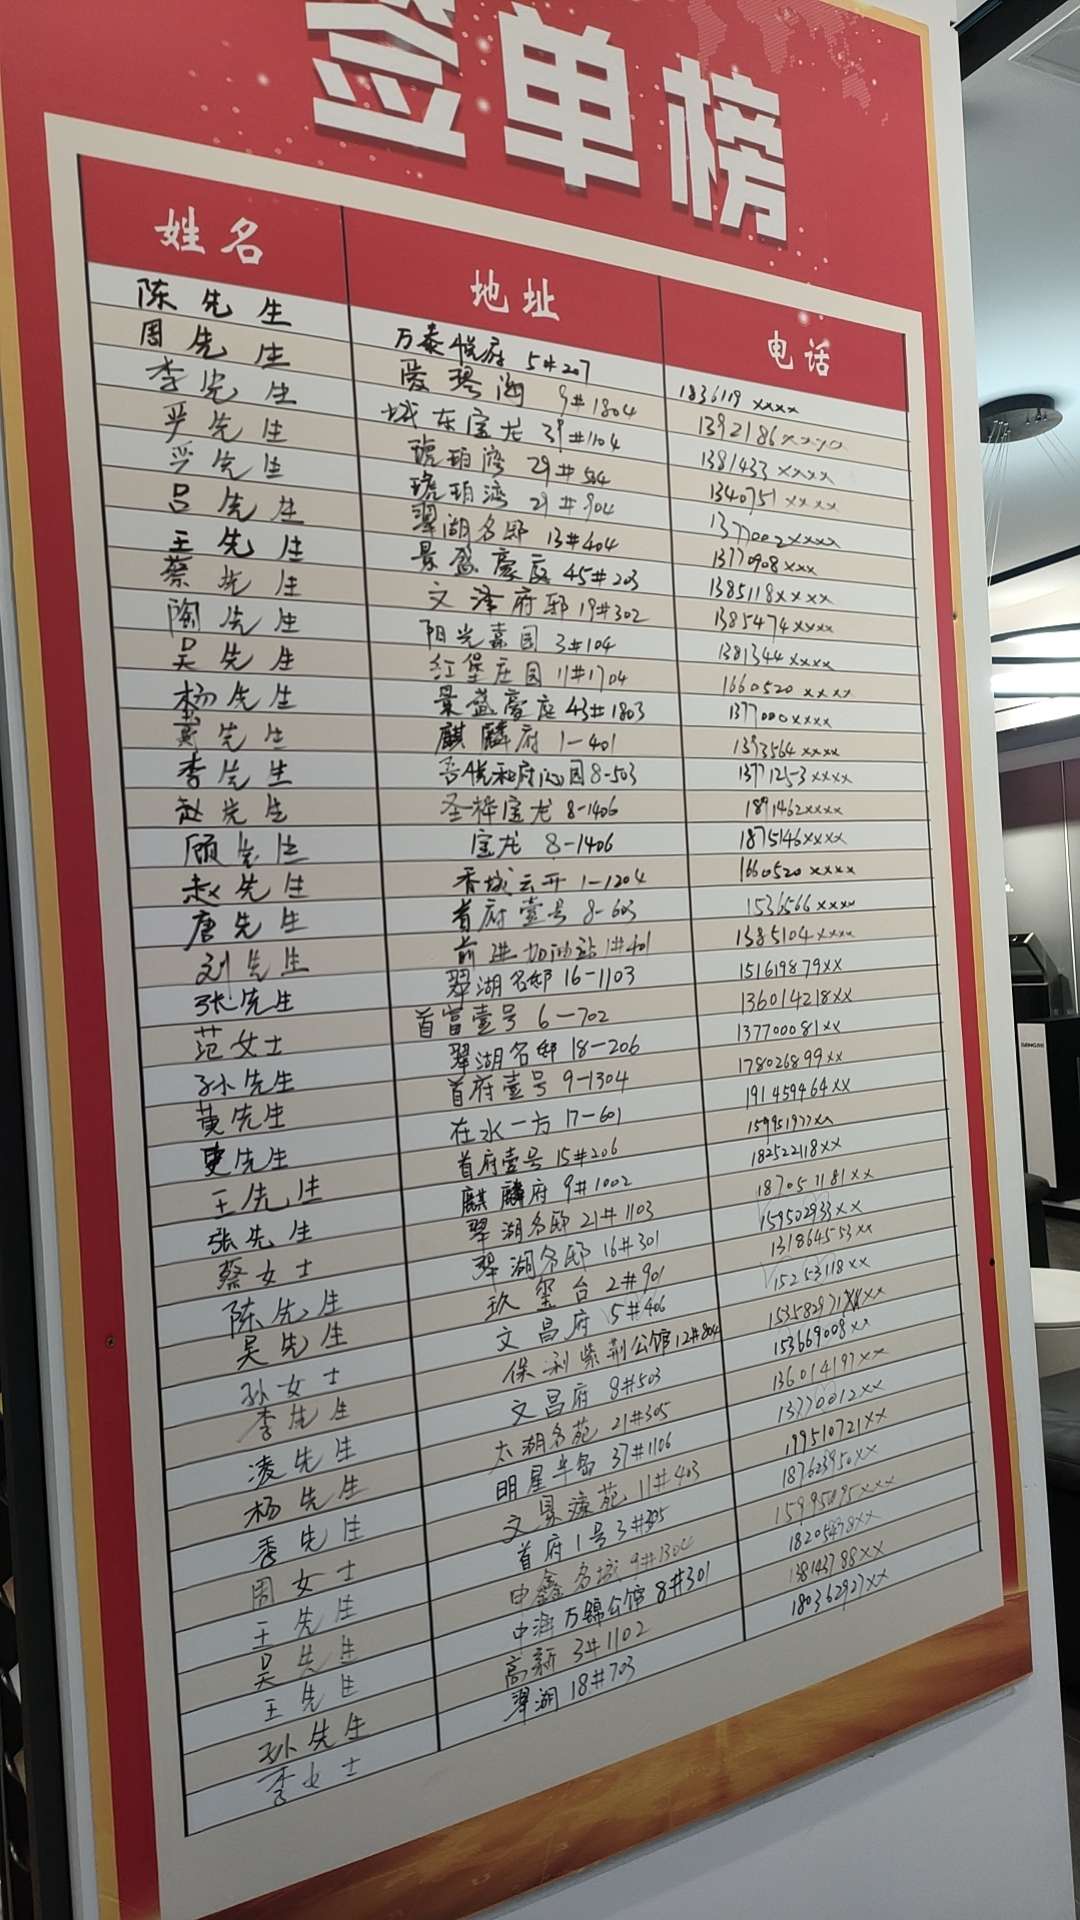 签单榜
姓名 地址 电话
陈先生 万泰悦府 5#207 1836119xxxx
周先生 爱琴海 9#1804 1392186xxxx
李先生 城东宝龙 39#1104 1381433xxxx
严先生 琥珀湾 29#504 1340751xxxx
严先生 琥珀湾 29#904 1377002xxxx
吕先生 翠湖名邸 13#404 1370908xxx
王先生 景盛豪庭 45#203 1385118xxxx
蔡先生 文泽府邸 19#302 1385474xxxx
陶先生 阳光嘉园 3#104 1381344xxxx
吴先生 红堡庄园 11#1704 1660520xxxx
杨先生 景盛豪庭 43#1803 1377000xxxx
黄先生 麒麟府 1-401 1393564xxxx
李先生 吾悦和府沁园 8-503 1377125-3xxxx
赵先生 圣桦宝龙 8-1406 1891462xxxx
顾先生 宝龙 8-1406 1875146xxxx
赵先生 香城云开 1-1204 1660520xxxx
唐先生 首府壹号 8-603 1536566xxxx
刘先生 前进加油站 1#401 1385104xxxx
张先生 翠湖名邸 16-1103 151619879xx
范女士 首富壹号 6-702 136014218xx
孙先生 翠湖名邸 18-206 137700081xx
黄先生 首府壹号 9-1304 178026899xx
先生 在水一方 17-601 191459464xx
王先生 首府壹号 15#206 159951977xx
张先生 麒麟府 9#1002 182522118xx
蔡女士 翠湖名邸 21#1103 187051181xx
陈先生 翠湖名邸 16#301 159502933xx
吴先生 玖玺台 2#901 131864553xx
孙女士 文昌府 5#406 15253118xx
李先生 保利紫荆公馆 12#804 153582971xx
凌先生 文昌府 8#503 153669008xx
杨先生 太湖名苑 21#305 136014197xx
季先生 明星半岛 37#1106 13770012xx
周女士 文景濠苑 11#403 199510721xx
王先生 首府1号 3#305 187623950xx
吴先生 中鑫名城 9#1304 15995095xxx
王先生 中海万锦公馆 8#301 18205478xx
孙先生 高新 3#1102 138143788xx
李女士 翠湖 18#703 180362927xx